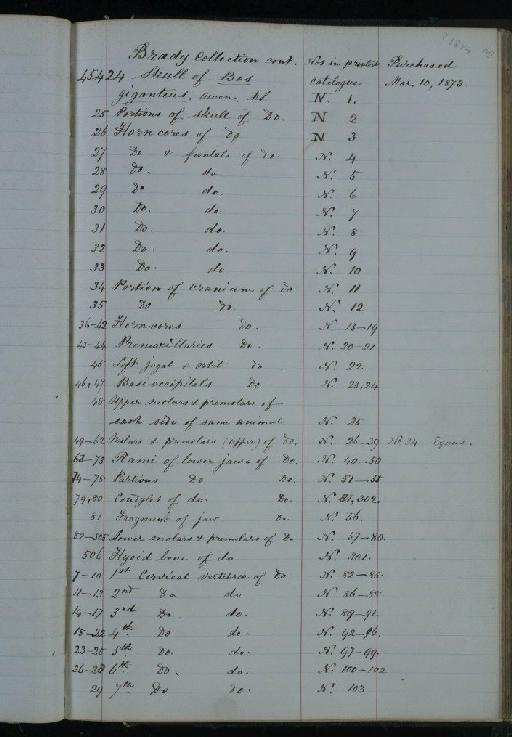 Brady Collection cont. Nos in printed Purchased
45424 Skull of Bos catalogue. Mar. 10, 1873
giganteus, Owen, MS N. 1.
25 Portions of skull of Do. N 2
26 Horn cores of Do N 3
27 Do & frontals of do N. 4
28 Do. do N. 5
29 Do do. N. 6
30 Do. do. N. 7
31 Do. do. N. 8
32 Do. do. N. 9
33 Do. do N. 10
34 Portion of cranium of Do N. 11
35 Do Do. N. 12
36-42 Horn cores Do. N. 13-19
43-44 Premaxillaries Do. N. 20-21
45 Left jugal & orbit Do N. 22
46,47 Basi-occipitals Do N. 23,24
48 Upper molars & premolars of
each side of same animal N. 25
49-62 Molars & premolars (upper) of Do. N. 26-39 N. 24 Equus.
63-73 Rami of lower jaws of Do. N. 40-50
74-78 Portions Do Do. N. 51-55
79,80 Condyles of do. Do. N. 81, 302.
81 Fragment of jaw Do. N. 56
Lower molars & premolars of Do N. 57-80.
506 Hyoid bone of do N.
7-10 1st Cervical vertebra of Do N. 83-85.
11-13 2nd Do do N. 86-88.
14-17 3rd Do. do. N. 89-91.
18-22 4th Do do. N. 92-96.
23-25 5th Do. do. N. 97-99.
26-28 6th Do. do. N. 100-102
29 7th Do do. N. 103